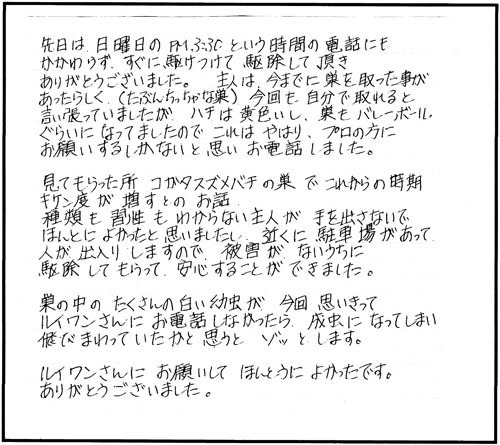 先日は、日曜日のPM.3:30という時間の電話にも
かかわらず、すぐに駆けつけて駆除して頂き
ありがとうございました。 主人は今までに巣を取った事が
あったらしく、(たぶんちっちゃな巣)今回も自分で取れると
言い張っていましたが、ハチは黄色いし、巣もバレーボール
ぐらいになってましたので これは やはり、プロの方に
お願いするしかないと思い お電話しました。
見てもらった所 コガタスズメバチの巣 で これからの時期
キケン度が 増すとの お話、
種類も 習性も わからない主人が 手を出さないで
ほんとに よかったと思いましたし、近くに 駐車場があって、
人が出入りしますので、被害が ないうちに
駆除 してもらって、安心することが できました。
巣の中の たくさんの白い幼虫が、今回 思いきって
ルイワンさんに お電話しなかったら、成虫に なってしまい
飛びまわっていたかと思うと ゾッとします。
ルイワンさんに お願いして ほんとうに よかったです。
ありがとうございました。